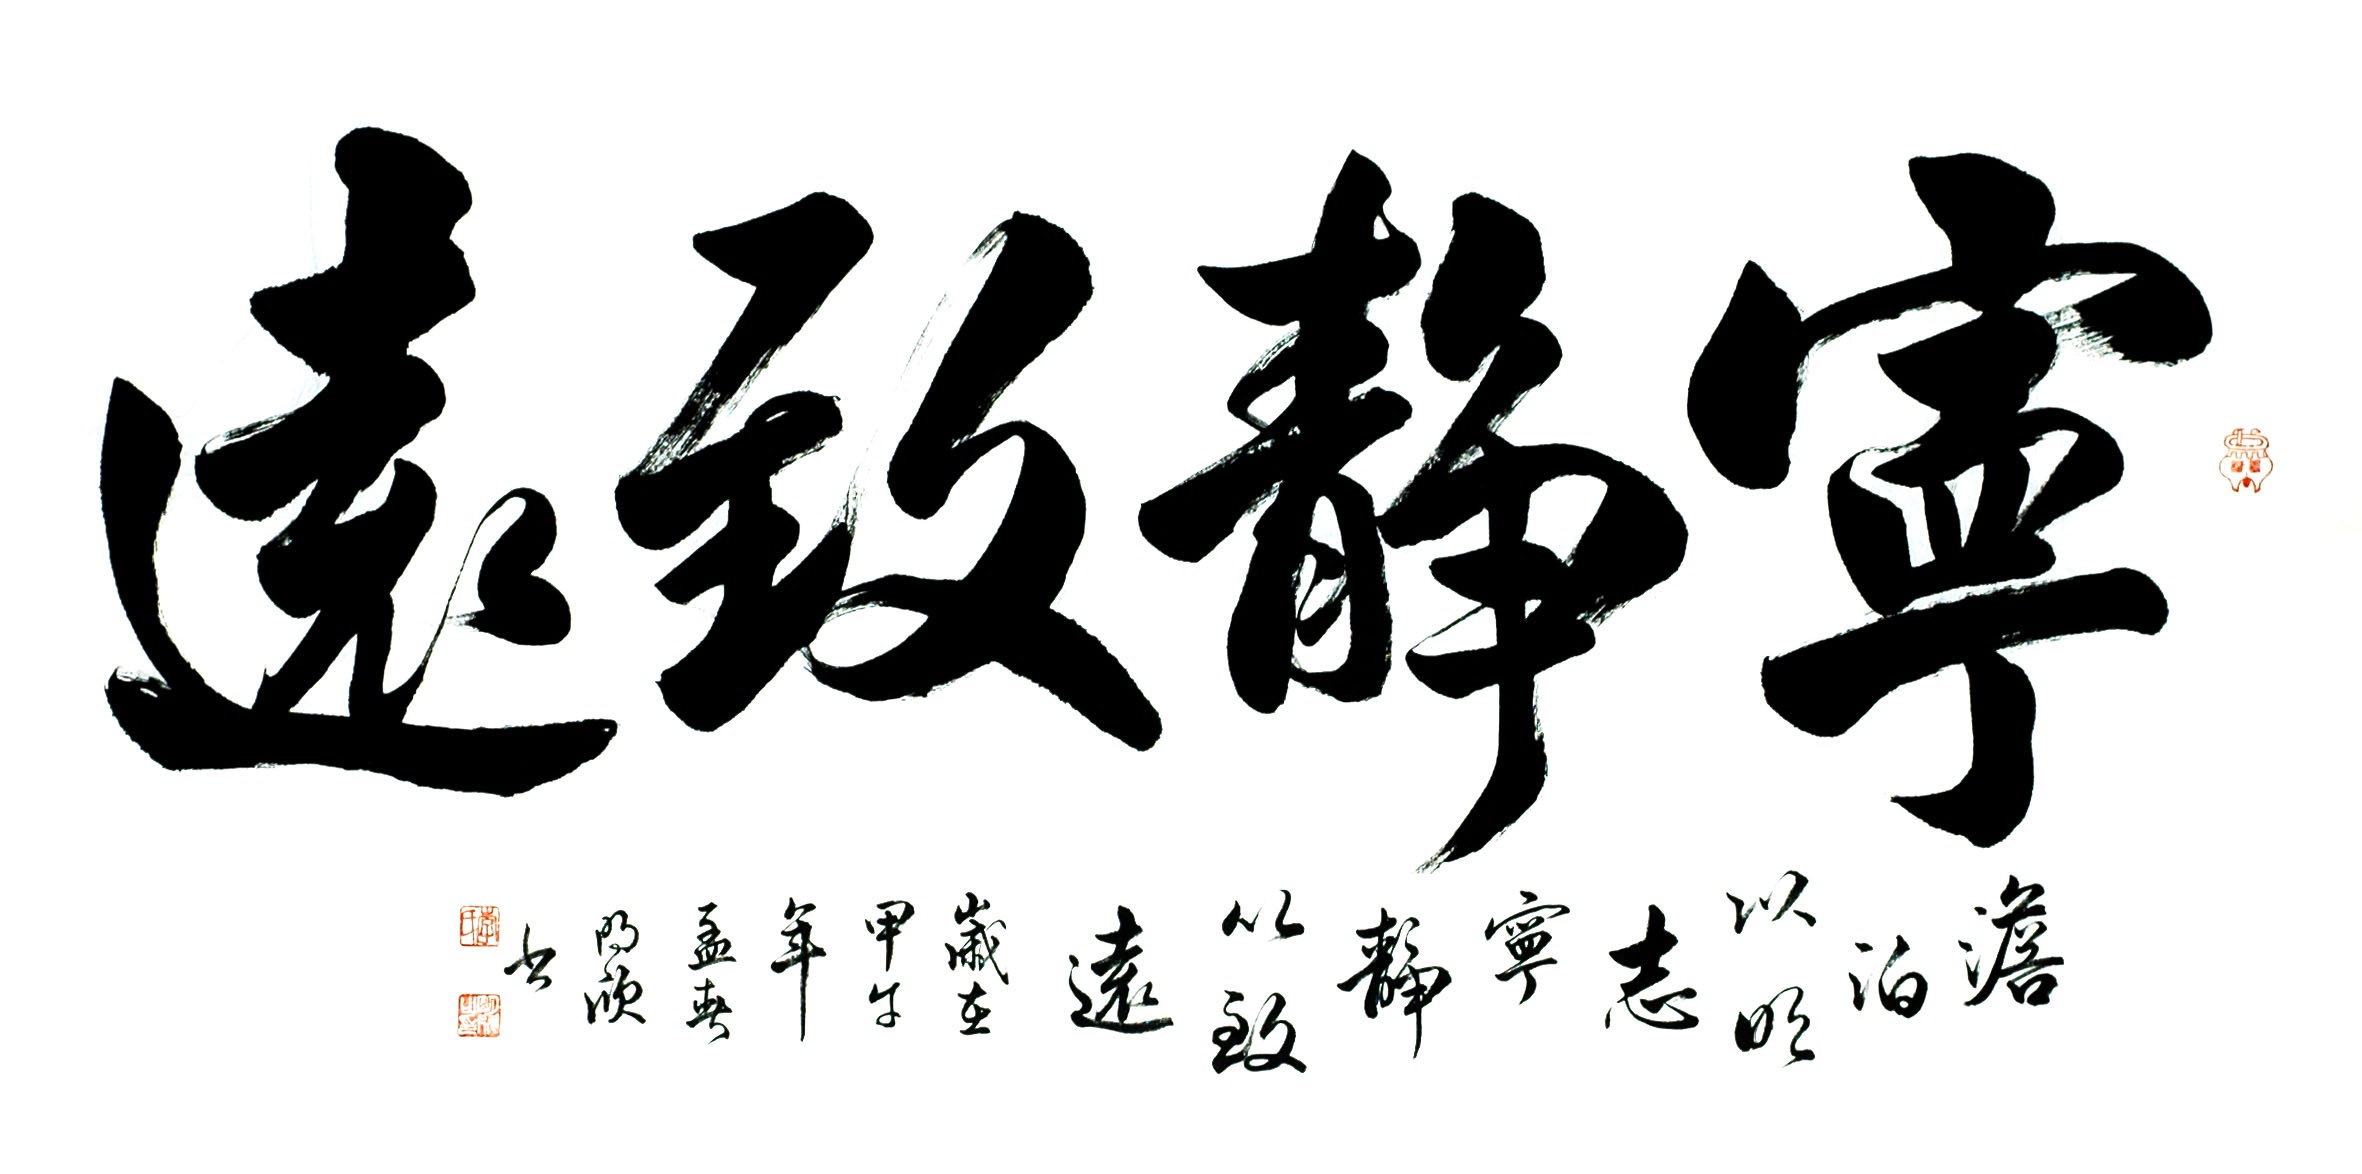 寧靜致遠
澹泊以明志寧靜以致遠
歲在甲午年孟春
書